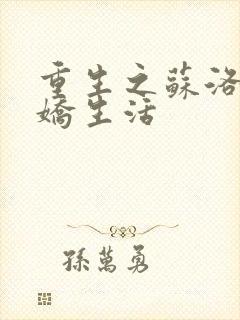 重生之蘇洛
嬌生活
孫萬勇